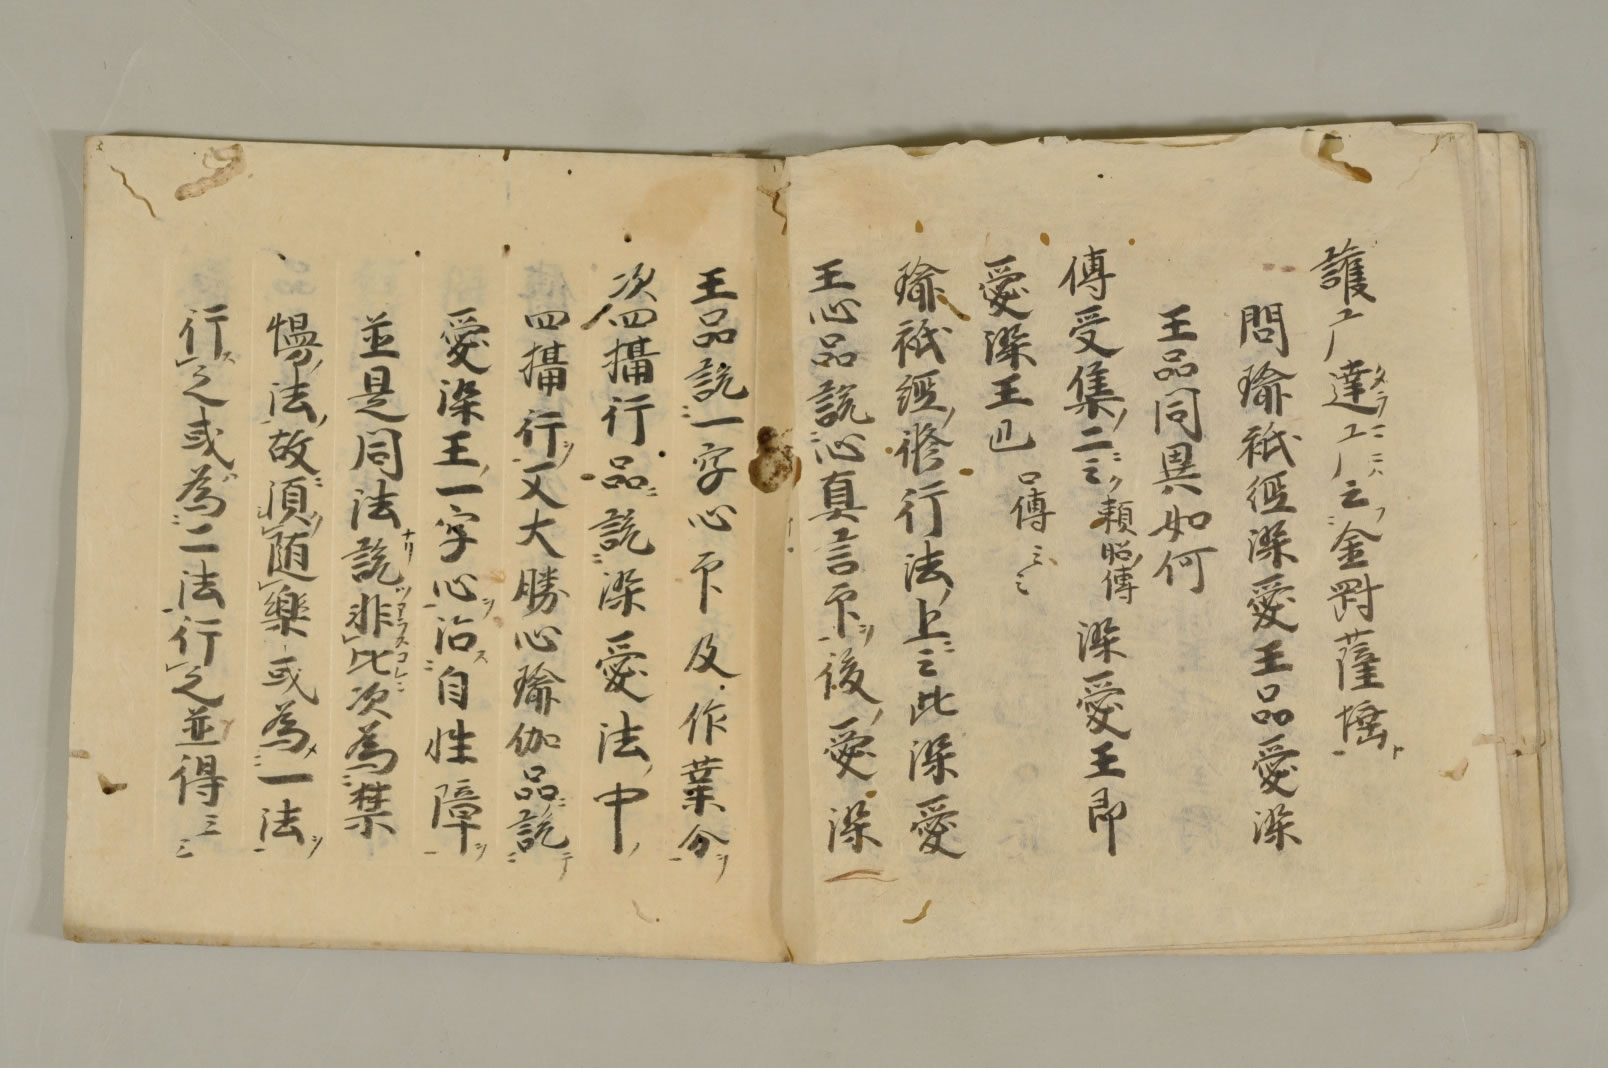 護エ广達エ广云金剛薩埵
問瑜祇經染愛王品愛染
王品同異如何
傳受集二云頼照傳染愛王即
愛染王也口傳云云
瑜祇經修行法上云此染愛
王心品説心真言印後愛染
王品説一字心印及作業分
次四攝行品説染愛法中
四攝行又大勝心瑜伽品説
愛染王一字心治自性障
並是同法説非此次為禁
慢法故須随樂或為一法
行之或為二法行之並得云云